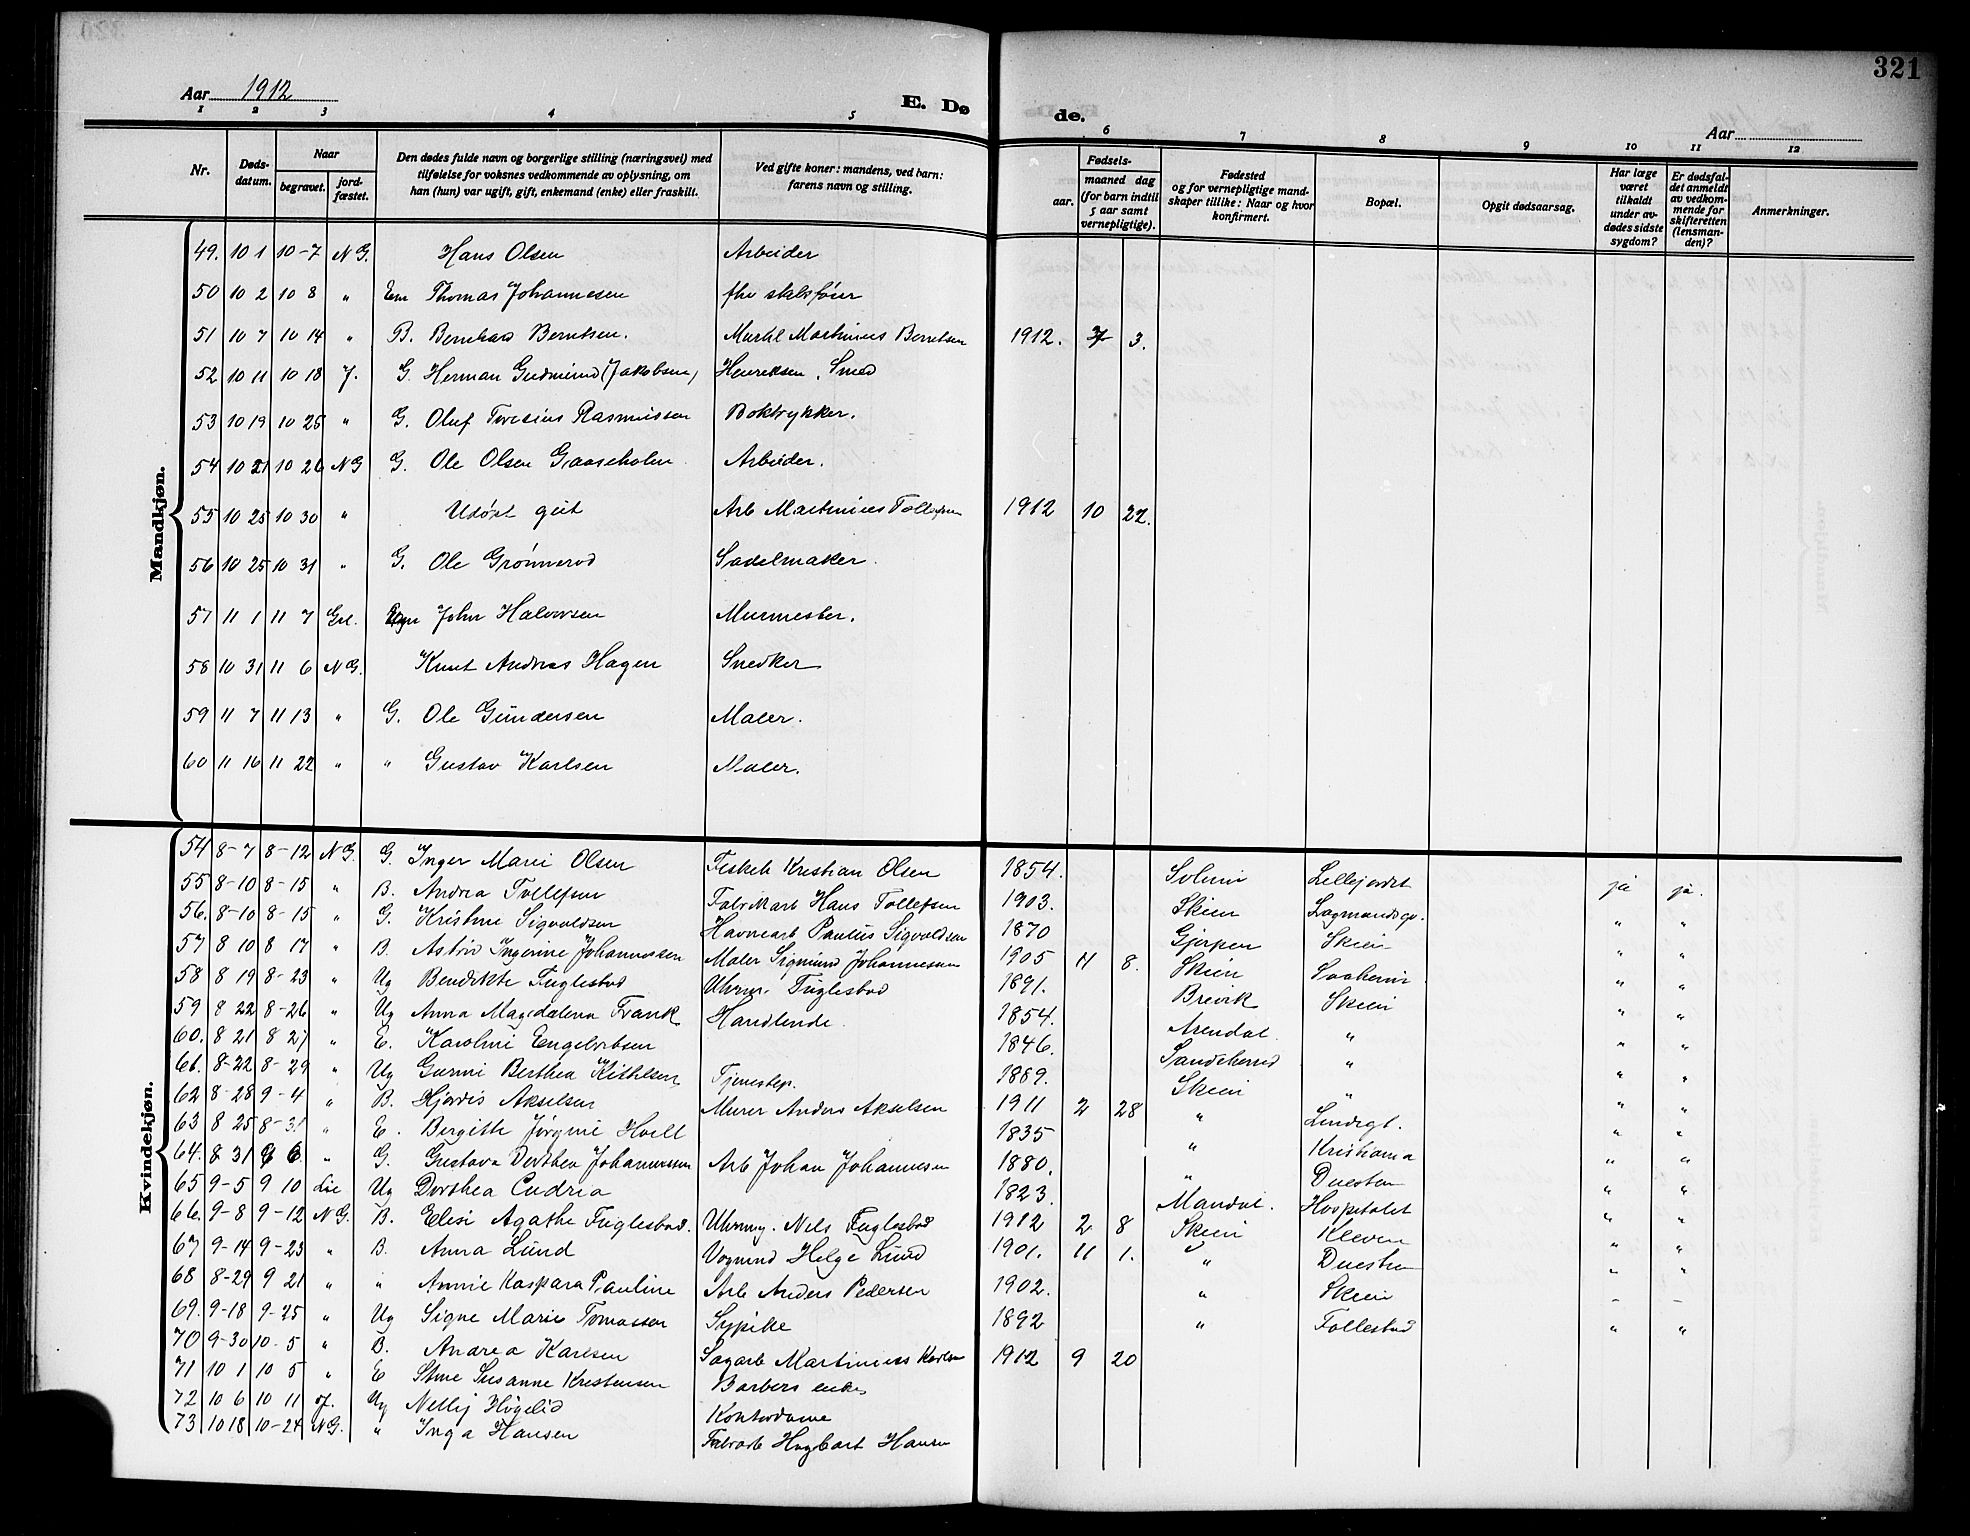 321
Aar 1912 E. Døde. Aar
1 2 3 4 5 6 7 8 9 10 11 12
Nr. Døds-datum. Naar begravet. jord-fæstet. Den dødes fulde navn og borgerlige stilling (næringsvei) med tilføielse for voksnes vedkommende av oplysning, om han (hun) var ugift, gift, enkemand (enke) eller fraskilt. Ved gifte koner: mandens, ved barn: farens navn og stilling. Fødsels- aar. maaned dag (for barn indtil 5 aar samt vernepligtige). Fødested og for vernepligtige mandskaper tillike: Naar og hvor konfirmert. Bopæl. Opgit dødsaarsag. Har læge været tilkaldt under avdødes sidste sygdom? Er dødsfaldet anmeldt av vedkommende for skifteretten (lensmanden)? Anmerkninger.
Mandkjøn.
49. 10 1 10-7 N G. Hans Olsen Arbeider
50 10 2 10 8 " Em Thomas Johannesen fhv
51 10 7 10 14 " B. Bernhard Berntsen. Martinius Berntsen 1912. 3.
52 10 11 10 18 J. G. Herman Gudmund (Jakobsen) Henriksen, Smed
53 10 19 10 25 " G. Oluf Rasmussen Boktrykker.
54 10 21 10 26 N G G. Ole Olsen Gaaseholm Arbeider.
55 10 25 10 30 " Udøpt gut Arb Martinius Tollefsen 1912 10 22.
56 10 25 10 31 " G. Ole Grønnerød Sadelmaker.
57 11 1 11 7 John Halvorsen Murmester.
58 10 31 11 6 N G. Knut Andreas Hagen Snedker
59 11 7 11 13 " G. Ole Gundersen Maler.
60 11 16 11 22 " " Gustav Karlsen Maler.
Kvindekjøn.
54 8-7 8-12 N G. G. Inger Marie Olsen Kristian Olsen 1854. Solum Lillejordet ja ja.
55 8-10 8-15 " B. Andrea Tollefsen Fabrikarb Hans Tollefsen 1903. Skien Lagmandsgr. " "
56. 8-10 8-15 " G. Kristine Sigvaldsen Havnearb Paulus Sigvaldsen 1870 Gjerpen Skien " "
57 8 10 8 17 " B. Astrid Ingerine Johannessen Maler Sigmund Johannesen 1905 11 8. Skien " "
58 8 19 8-23 " Ug Bendikte Fuglestad Uhrm. Fuglestad 1891. Brevik Skien " "
59 8 22 8-26 " Ug Anna Magdalena Frank Handlende. 1854. Arendal " " "
60. 8 21 8 27 " E. Karoline Engelbretsen 1846. Sandeherred " " "
61. 8-22 8-29 " Ug Gunni Berthea Kittilsen Tjenestep. 1889. Skien " " "
62 8-28 9-4 " B. Hjørdis Akselsen Murer Anders Akselsen 1911 2 28 " Lundegt. " "
63 8 25 8-31 " E. Bergitte Jørgine Hvell 1835 " Kristiania " "
64. 8 31 9 6. " G. Gustava Dorthea Johannessen Arb Johan Johannesen 1880. " Duestien " "
65 9-5 9 10 Lie Ug Dorthea Cudrio 1823. Mandal. Hospitalet " "
66. 9-8 9-12 N G. B. Elise Agathe Fuglestad. Uhrmag. Nils Fuglestad 1912 2 8 Skien Kleven " "
67 9-14 9-23 " B. Anna Lund Vognmd Helge Lund 1901. 11 1. " Duestien " "
68 8-29 9 21 " " Annie Kaspara Pauline Arb Anders Pedersen 1902. " Skien - -
69. 9-18 9-25 " Ug Signe Marie Tomassen Sypike 1892 " Follestad " "
70 9-30 10-5 " B. Andrea Karlsen Sagarb Martinius Karlsen 1912 9 20
71 10 1 10 5 " E Stine Susanne Kristensen Barbers enke,
72 10 6 10 11 Ug Nelly Høgelid Kontordame
73 10 18 10-24 N G. " Inga Hansen Fabrarb Hagbart Hansen